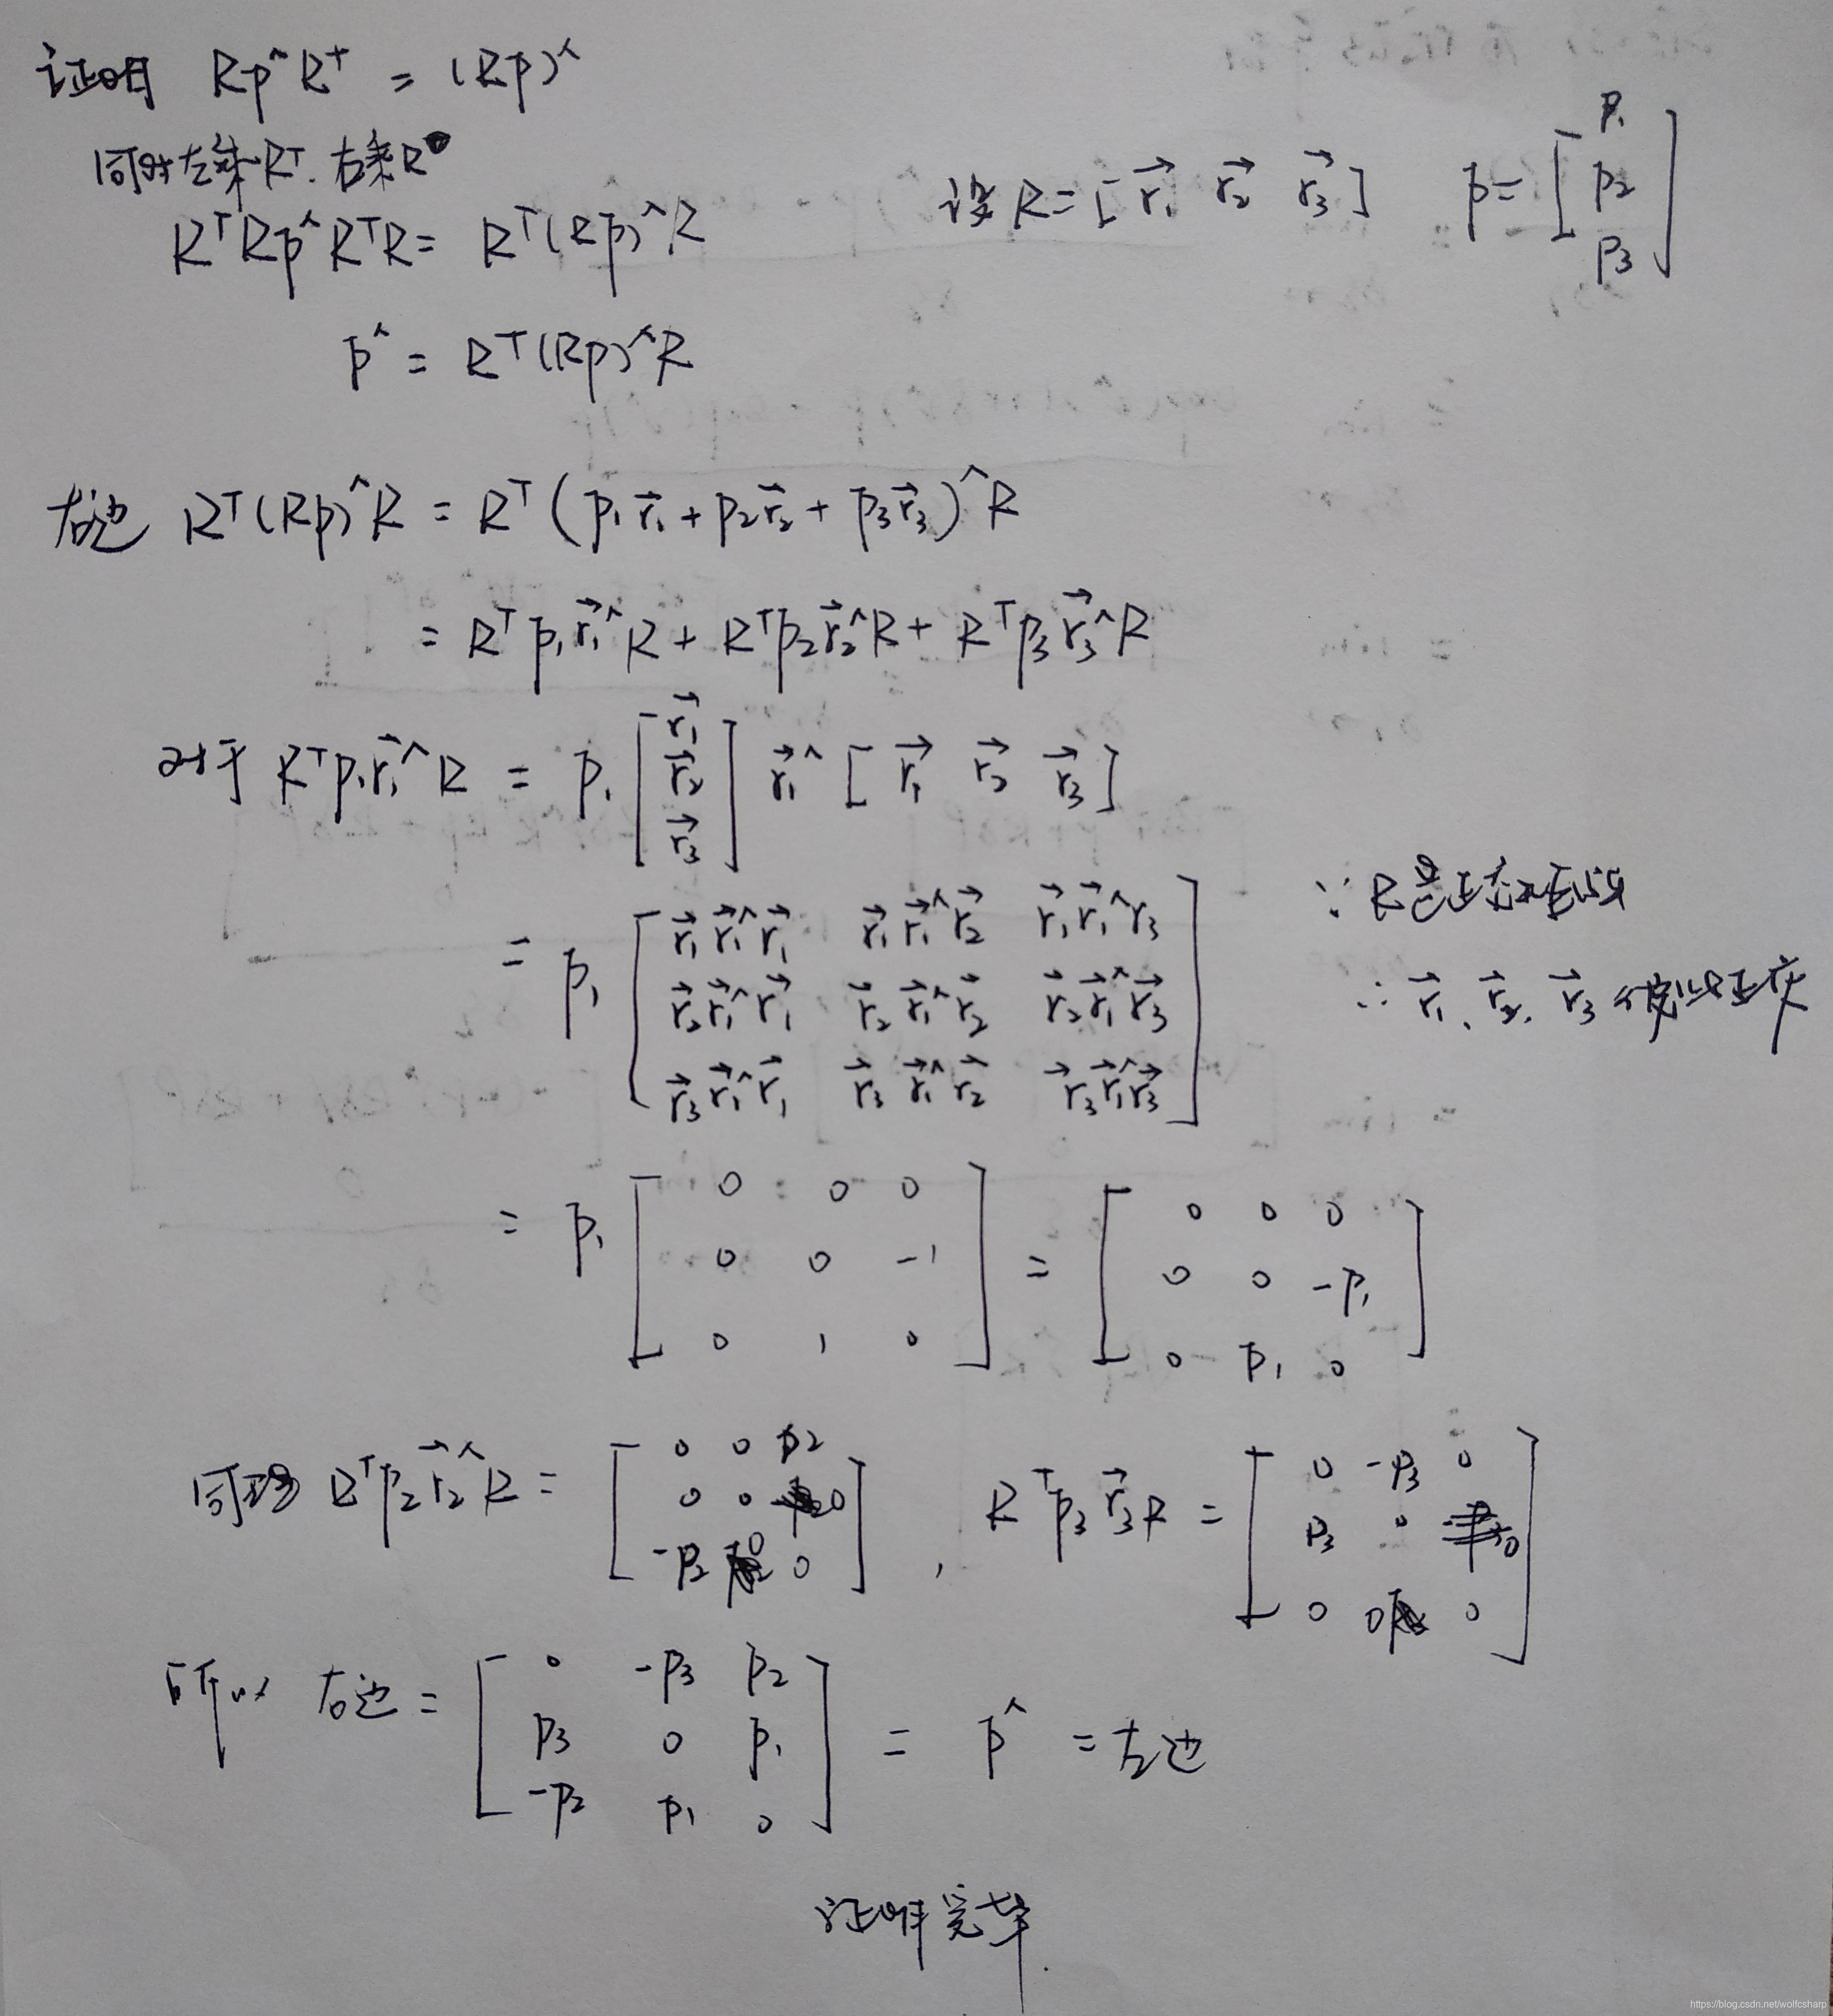 证明 Rp^Rᵀ = (Rp)^
同时左乘Rᵀ. 右乘R
设 R = [r⃗₁ r⃗₂ r⃗₃] p = [p₁ p₂ p₃]
RᵀRp^RᵀR = Rᵀ(Rp)^R
p^ = Rᵀ(Rp)^R
右边 Rᵀ(Rp)^R = Rᵀ(p₁r⃗₁ + p₂r⃗₂ + p₃r⃗₃)^R
= Rᵀp₁r⃗₁^R + Rᵀp₂r⃗₂^R + Rᵀp₃r⃗₃^R
对于 Rᵀp₁r⃗₁^R = p₁ [r⃗₁ r⃗₂ r⃗₃] r⃗₁^ [r⃗₁ r⃗₂ r⃗₃]
= p₁ [r⃗₁r⃗₁^r⃗₁ r⃗₁r⃗₁^r⃗₂ r⃗₁r⃗₁^r₃
r⃗₂r⃗₁^r⃗₁ r⃗₂r⃗₁^r⃗₂ r⃗₂r⃗₁^r⃗₃
r⃗₃r⃗₁^r⃗₁ r⃗₃r⃗₁^r⃗₂ r⃗₃r⃗₁^r⃗₃]
∵ R是正交矩阵
∴ r⃗₁、r⃗₂, r⃗₃彼此正交
= p₁ [0 0 0
0 0 -1
0 1 0]
= [0 0 0
0 0 -p₁
0 p₁ 0]
同理 Rᵀp₂r⃗₂^R = [0 0 p₂
0 0 0
-p₂ 0 0]
, Rᵀp₃r⃗₃R = [0 -p₃ 0
p₃ 0 0
0 0 0]
所以 右边 = [0 -p₃ p₂
p₃ 0 p₁
-p₂ p₁ 0]
= p^ =左边
证明完毕.
https://blog.csdn.net/wolfcsharp